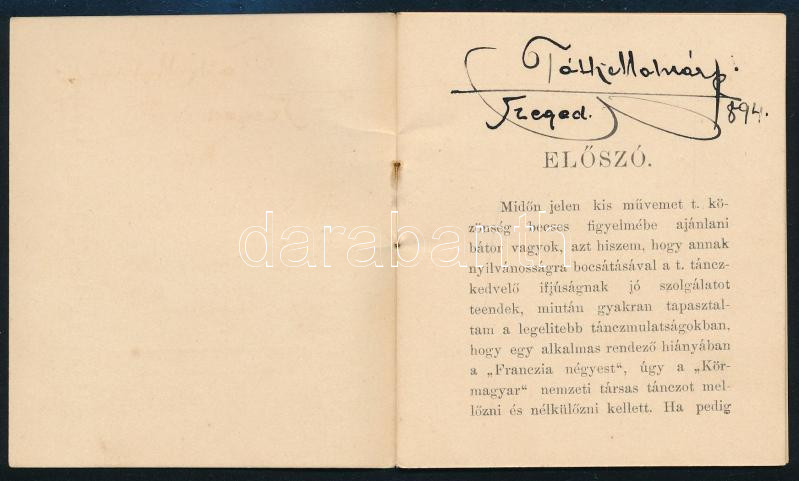 Szeged. 894.
ELŐSZÓ.
Midőn jelen kis művemet t. kö-
zönség becses figyelmébe ajánlani
bátor vagyok, azt hiszem, hogy annak
nyilvánosságra bocsátásával a t. táncz-
kedvelő ifjúságnak jó szolgálatot
teendek, miután gyakran tapasztal-
tam a legelitebb tánczmulatságokban,
hogy egy alkalmas rendező hiányában
a „Franczia négyest“, úgy a „Kör-
magyar“ nemzeti társas tánczot mel-
lőzni és nélkülözni kellett. Ha pedig
darabanth